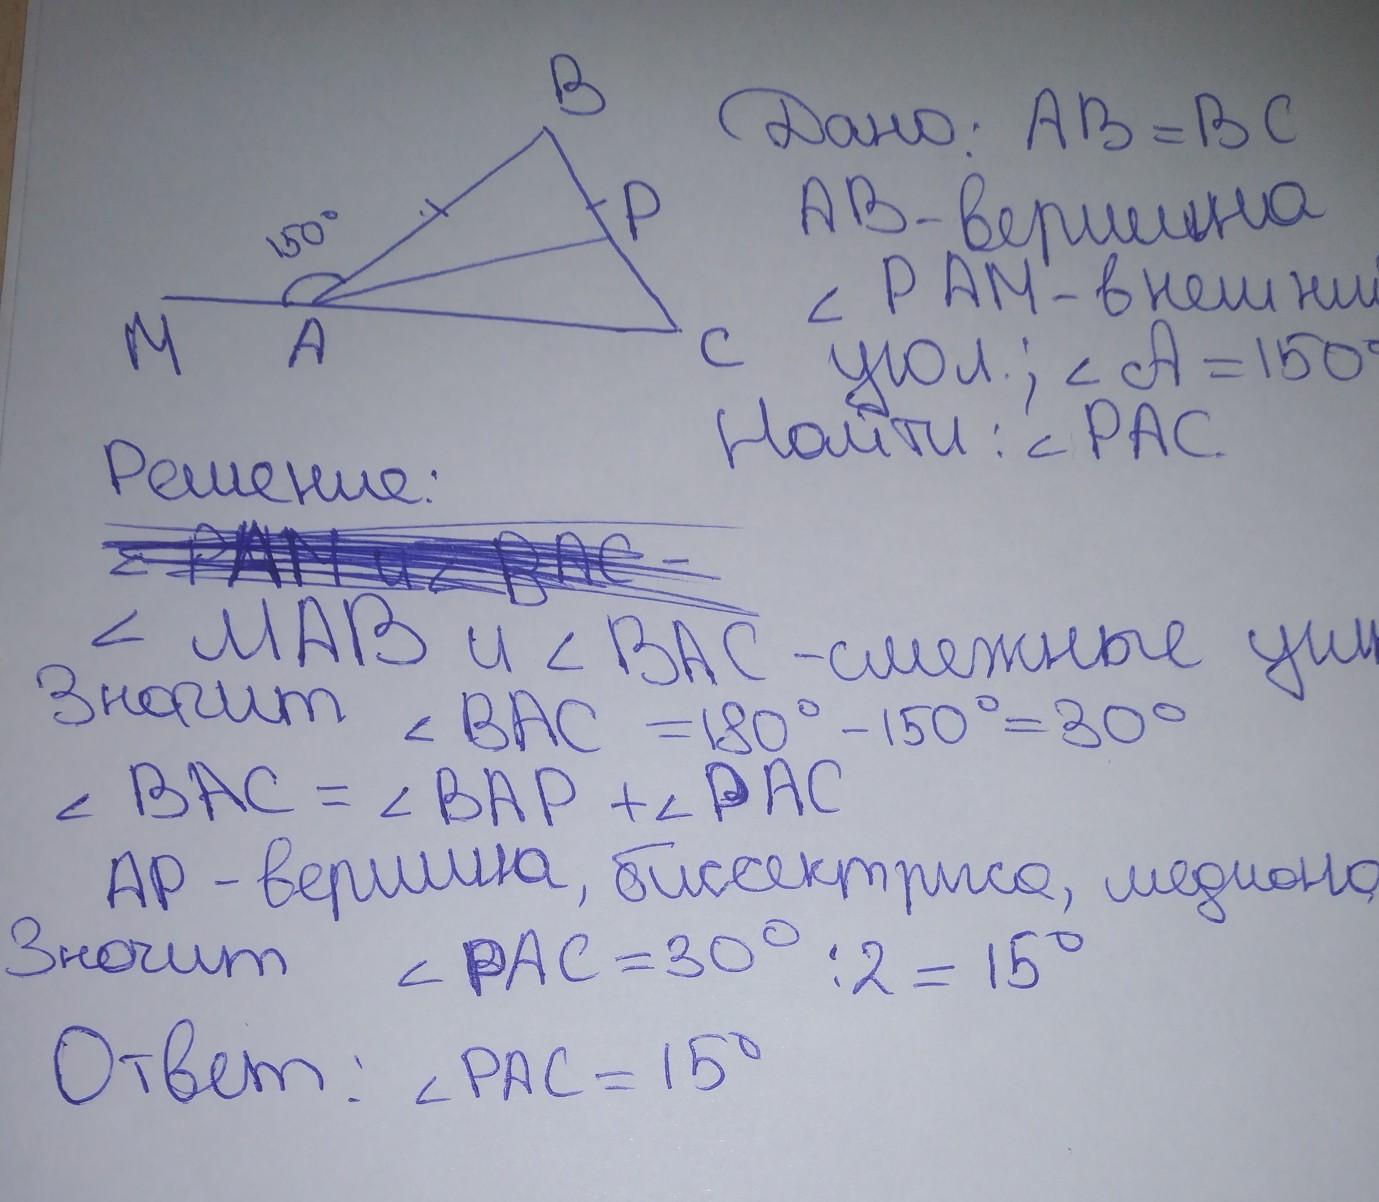 B
Дано: AB = BC
P
AB - вершина
150°
∠ PAM - внешний
M A C
угол; ∠ A = 150°
Найти: ∠ PAC.
Решение:
∠ MAB и ∠ BAC - смежные
Значит ∠ BAC = 180° - 150° = 30°
∠ BAC = ∠ BAP + ∠ PAC
AP - вершина, биссектриса, медиана
Значит ∠ PAC = 30° : 2 = 15°
Ответ: ∠ PAC = 15°